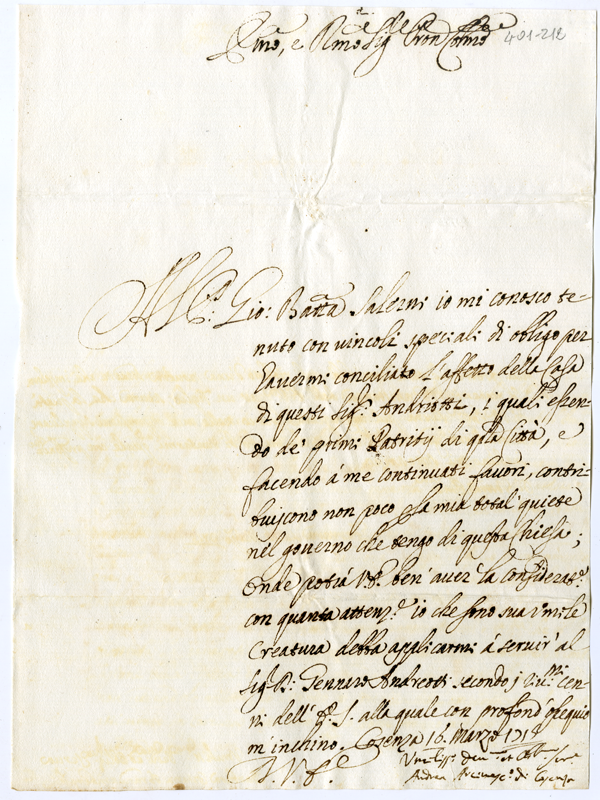 Emo, e Rmo Sig.r Pron Colmo
401-212
Al P. Gio: Batta Salerni io mi conosco te-
nuto con vincoli speciali di obligo per
havermi conciliato l'affetto della Casa
di questi Sig.i Andriotti, i quali essen-
do de' primi Patritij di qsta Città, e
facendo á me continuati favori, contri-
buiscono non poco alla mia total' quiete
nel governo che tengo di questa Chiesa;
onde potrà V.E. ben' aver' la Considerat.e
con quanta attenz.e io che sono sua umile
Creatura debba applicarmi á servir' al
Sig. D: Gennaro Andreotti secondo i cen-
ni dell' E. S. alla quale con profond' ossequio
m'inchino. Cosenza 16. Marzo
D. V. E.
Andrea Arcivesc.o di Cosenza